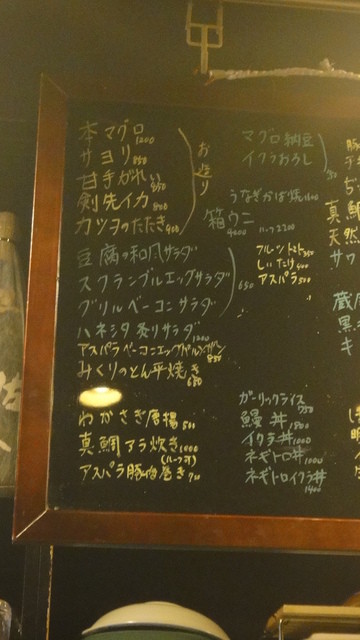 本マグロ 1200
サヨリ 850
甘手がれい 850
剣先イカ 800
カツヲのたたき 900
お造り
豆腐の和風サラダ
スクランブルエッグサラダ
グリルベーコンサラダ
650
ハネシタ炙りサラダ 1200
アスパラベーコンエッグ 850
みくりのとん平焼き 680
わかさぎ唐揚 500
真鯛アラ炊き 1000
(ハーフ可)
アスパラ豚肉巻き 700
マグロ納豆
イクラおろし
うなぎかば焼
箱ウニ 4000 ハーフ2200
フルーツトマト
しいたけ
アスパラ 500
ガーリックライス
鰻丼 1800
イクラ丼 1000
ネギトロ丼 1000
ネギトロイクラ丼 1400
真鯛
天然
サワ
黒
キ